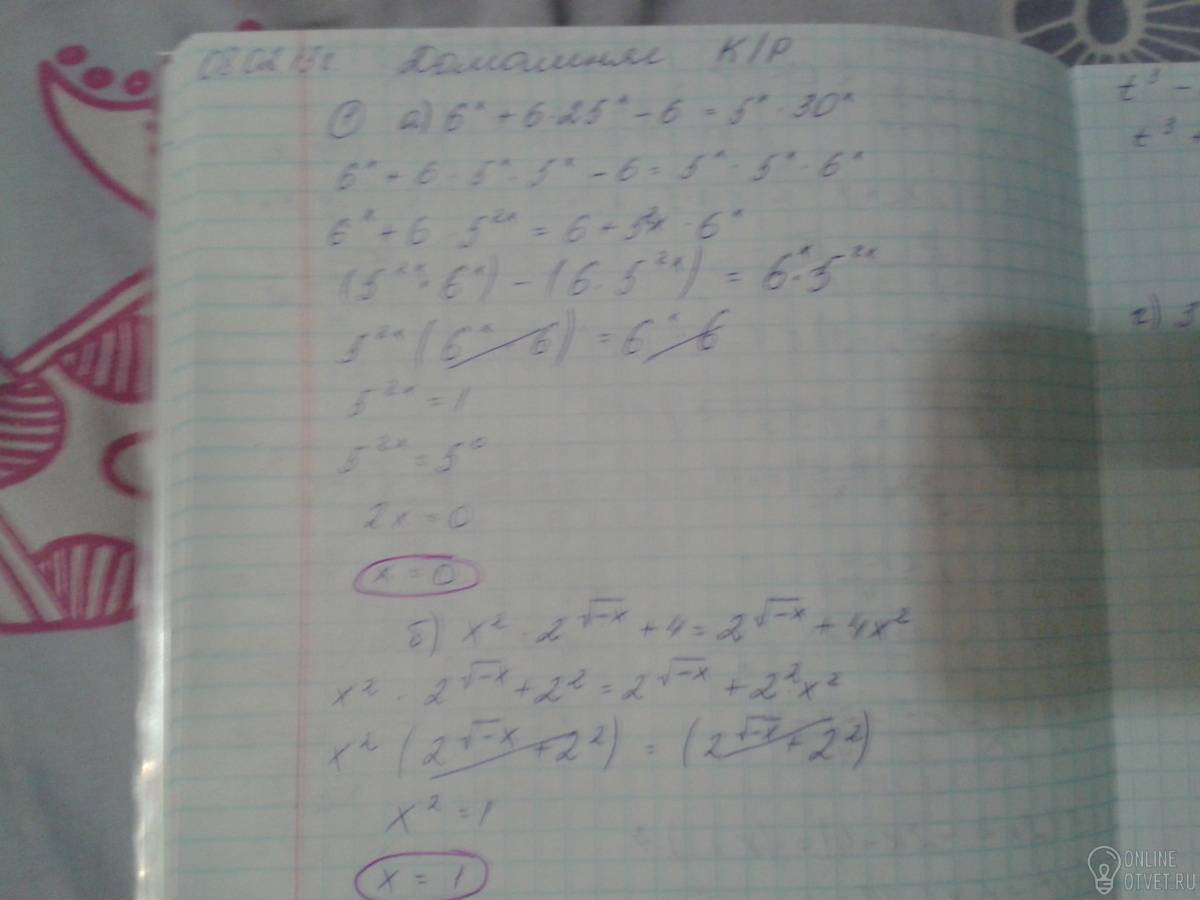 08.02.13г Домашняя К/Р
① а) 6ˣ + 6·25ˣ - 6 = 5ˣ · 30ˣ
6ˣ + 6 · 5ˣ · 5ˣ - 6 = 5ˣ · 5ˣ · 6ˣ
6ˣ + 6 · 5²ˣ = 6 + 5²ˣ · 6ˣ
(5²ˣ · 6ˣ) - (6 · 5²ˣ) = 6ˣ · 5²ˣ
5²ˣ (6ˣ - 6) = 6ˣ - 6
5²ˣ = 1
5²ˣ = 5⁰
2x = 0
x = 0
б) x² · 2^√-x + 4 = 2^√-x + 4x²
x² · 2^√-x + 2² = 2^√-x + 2²x²
x² (2^√-x + 2²) = (2^√-x + 2²)
x² = 1
x = 1
t³ -
t³ +
г) 3
ONLINE
OTVET.RU